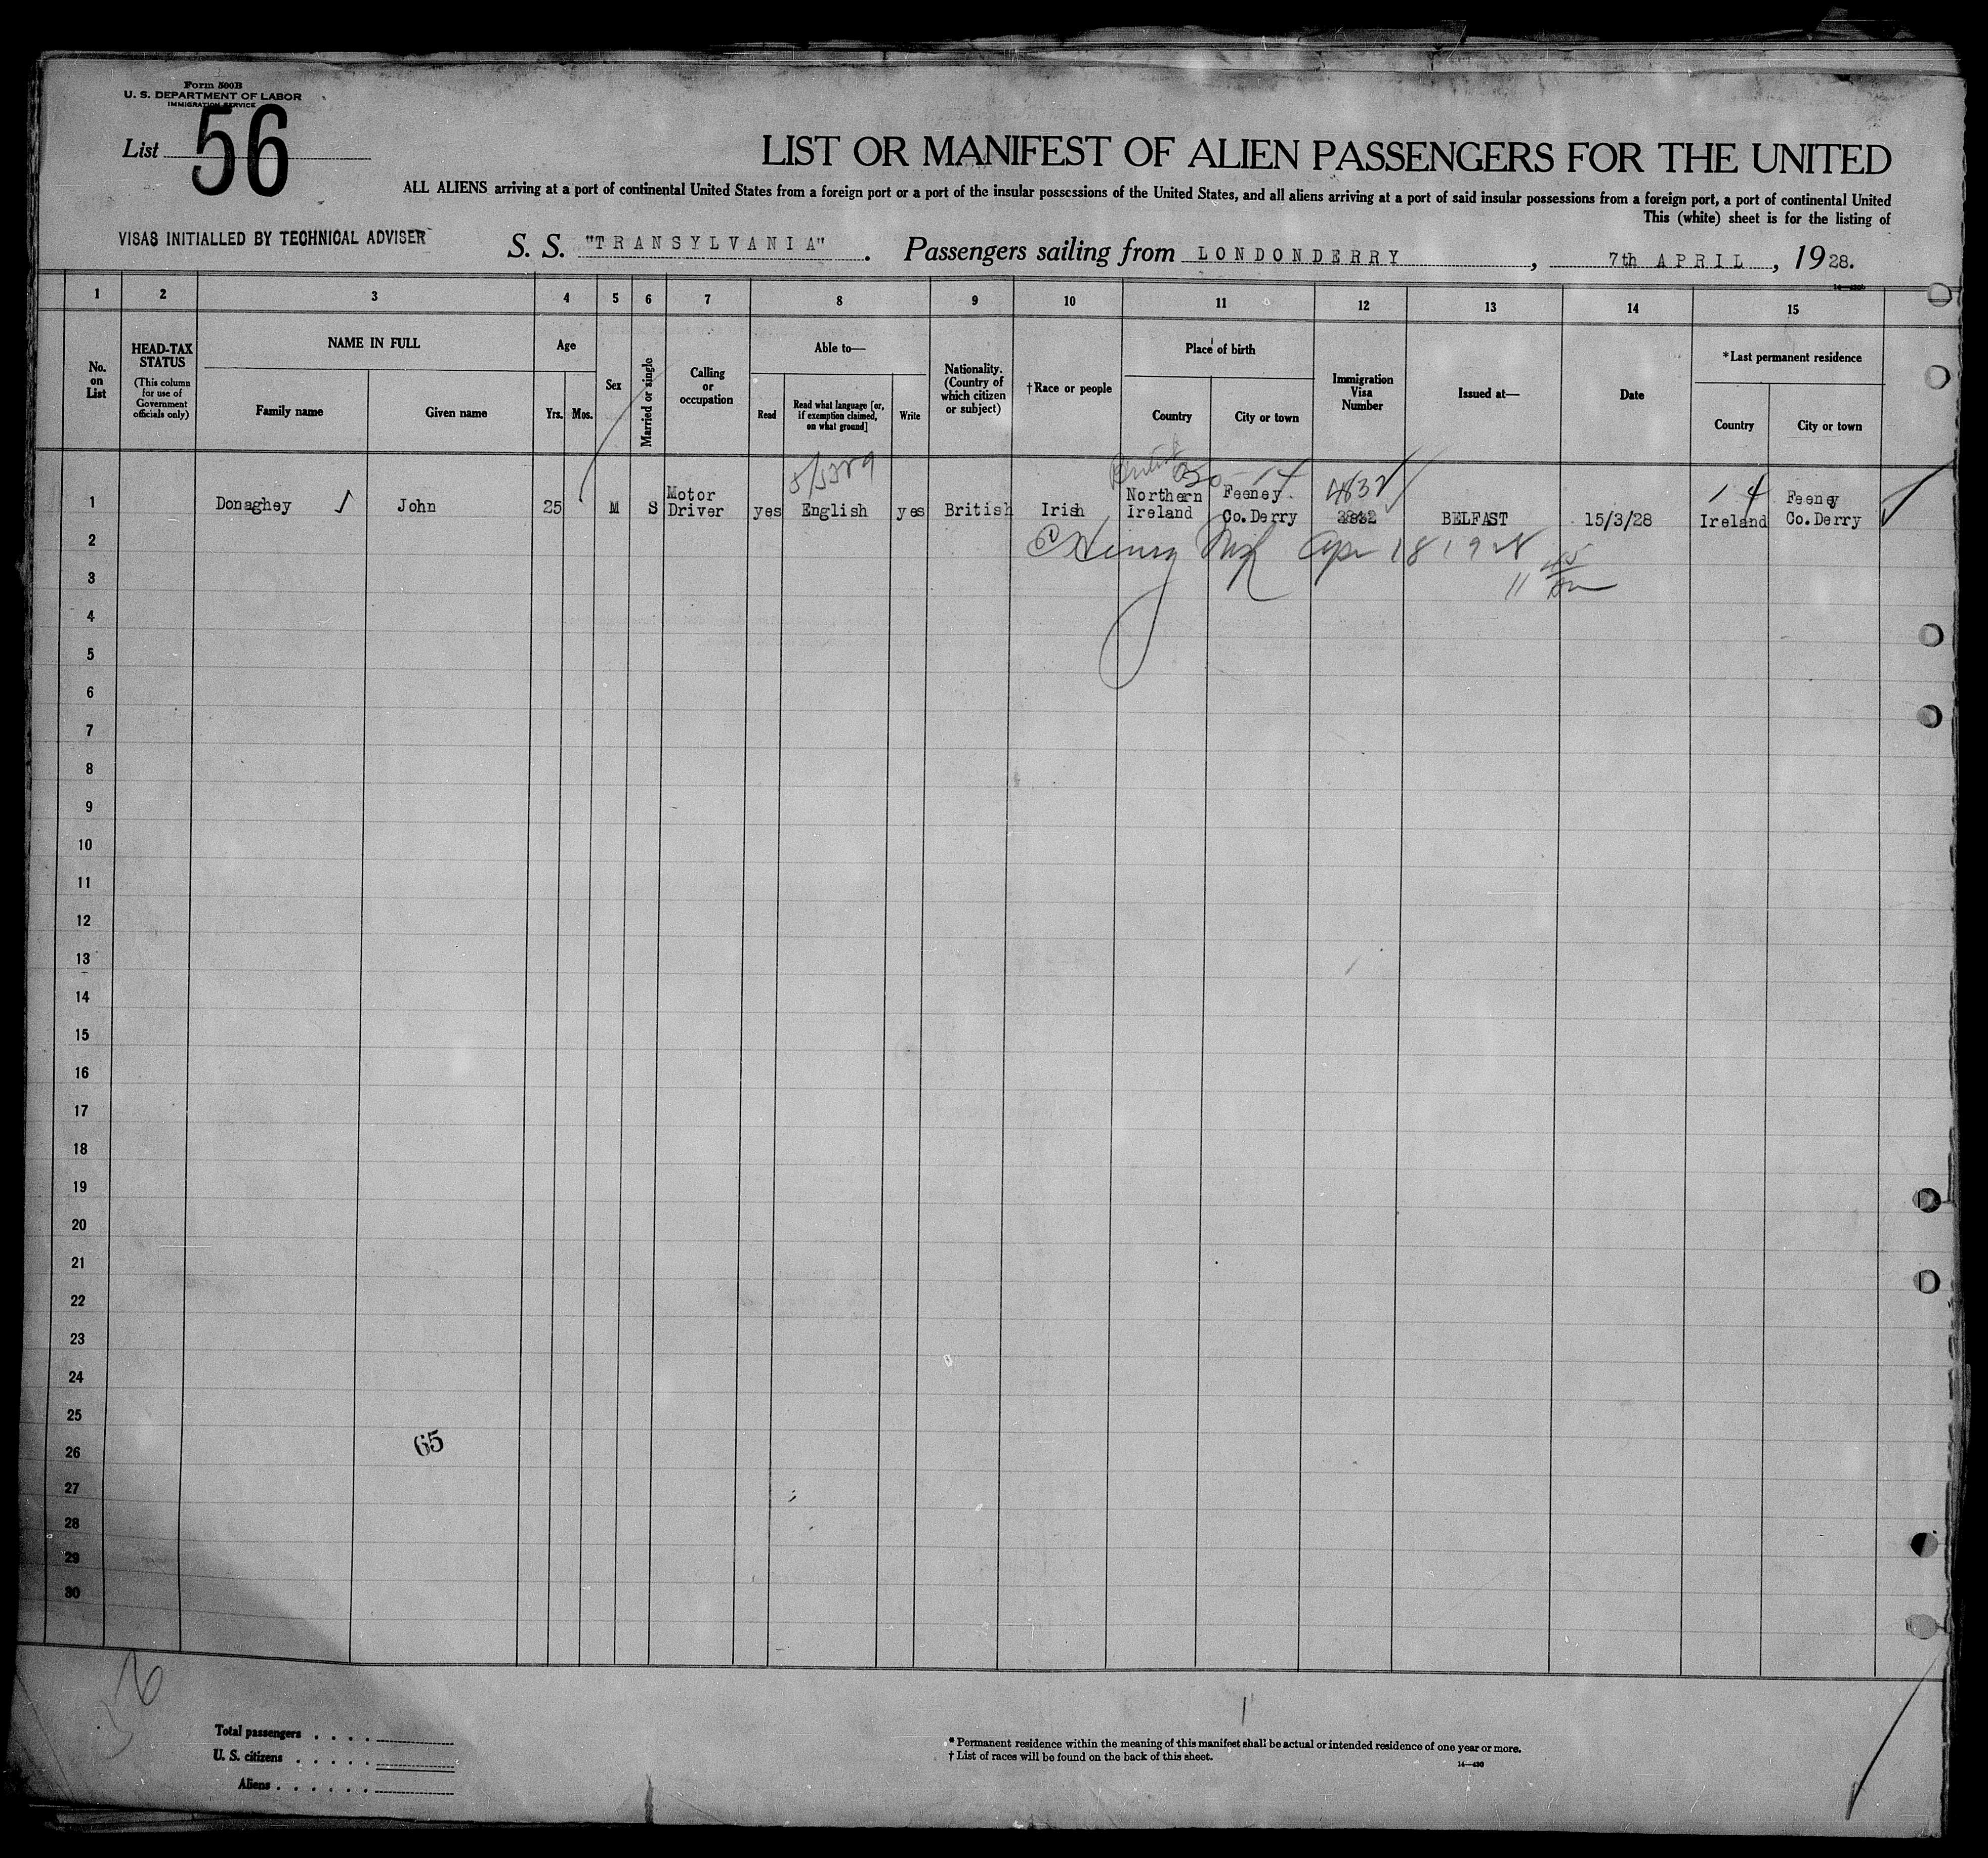 Form 500B
U. S. DEPARTMENT OF LABOR
IMMIGRATION SERVICE
List 56
LIST OR MANIFEST OF ALIEN PASSENGERS FOR THE UNITED
ALL ALIENS arriving at a port of continental United States from a foreign port or a port of the insular possessions of the United States, and all aliens arriving at a port of said insular possessions from a foreign port, a port of continental United
This (white) sheet is for the listing of
VISAS INITIALLED BY TECHNICAL ADVISER
S. S. "TRANSYLVANIA". Passengers sailing from LONDONDERRY, 7th APRIL, 1928.
1 2 3 4 5 6 7 8 9 10 11 12 13 14 15
No. on List
HEAD-TAX STATUS
(This column for use of Government officials only)
NAME IN FULL
Family name
Given name
Age
Yrs. Mos.
Sex
Married or single
Calling or occupation
Able to—
Read
Read what language [or, if exemption claimed, on what ground]
Write
Nationality. (Country of which citizen or subject)
†Race or people
Place of birth
Country
City or town
Immigration Visa Number
Issued at—
Date
*Last permanent residence
Country
City or town
1 Donaghey John 25 M S Motor Driver yes English yes British Irish Northern Ireland Feeney Co.Derry BELFAST 15/3/28 Ireland Feeney Co.Derry
14
4832
14
Apr 18 1928
2
3
4
5
6
7
8
9
10
11
12
13
14
15
16
17
18
19
20
21
22
23
24
25
26
65
27
28
29
30
Total passengers . . . .
U. S. citizens . . . . .
Aliens . . . . . .
1
* Permanent residence within the meaning of this manifest shall be actual or intended residence of one year or more.
† List of races will be found on the back of this sheet.
14—430